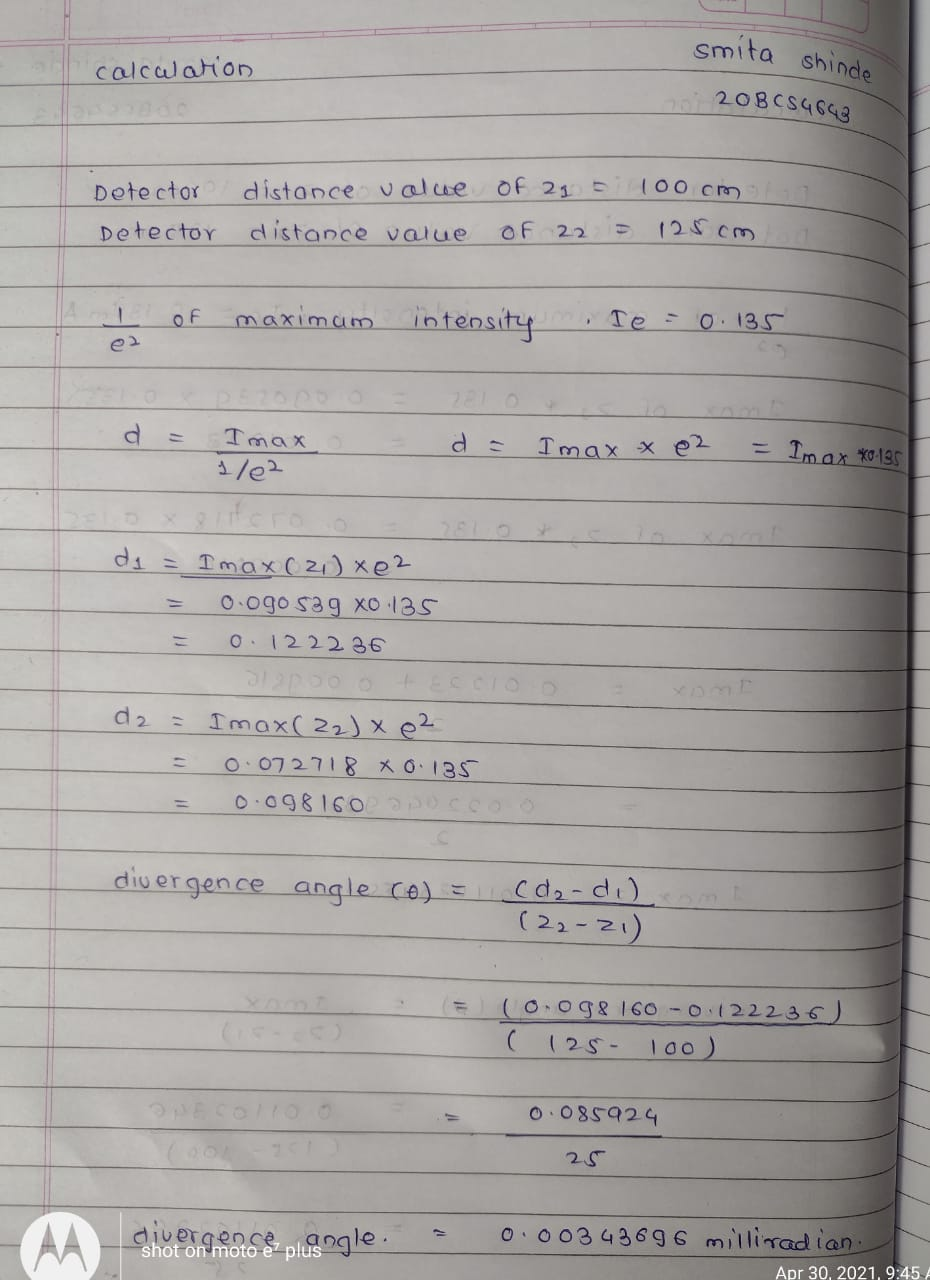 calculation
smita shinde
20BCS4643
Detector distance value of z1 = 100 cm
Detector distance value of z2 = 125 cm
1/e2 of maximum intensity, Ie = 0.135
d = Imax / 1/e2 d = Imax x e2 = Imax x0.135
d1 = Imax(z1) x e2
= 0.090539 x0.135
= 0.122236
d2 = Imax(z2) x e2
= 0.072718 x 0.135
= 0.098160
divergence angle (θ) = (d2-d1) / (z2-z1)
= (0.098160-0.122236) / (125- 100)
= 0.085924 / 25
divergence angle. = 0.00343696 milliradian.
shot on moto e7 plus
Apr 30, 2021, 9:45